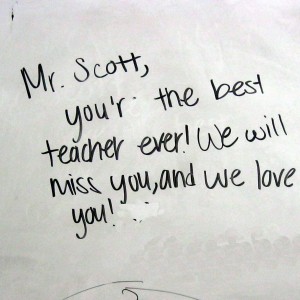 Mr. Scott,
you'r the best
teacher ever! We will
miss you, and we love
you!